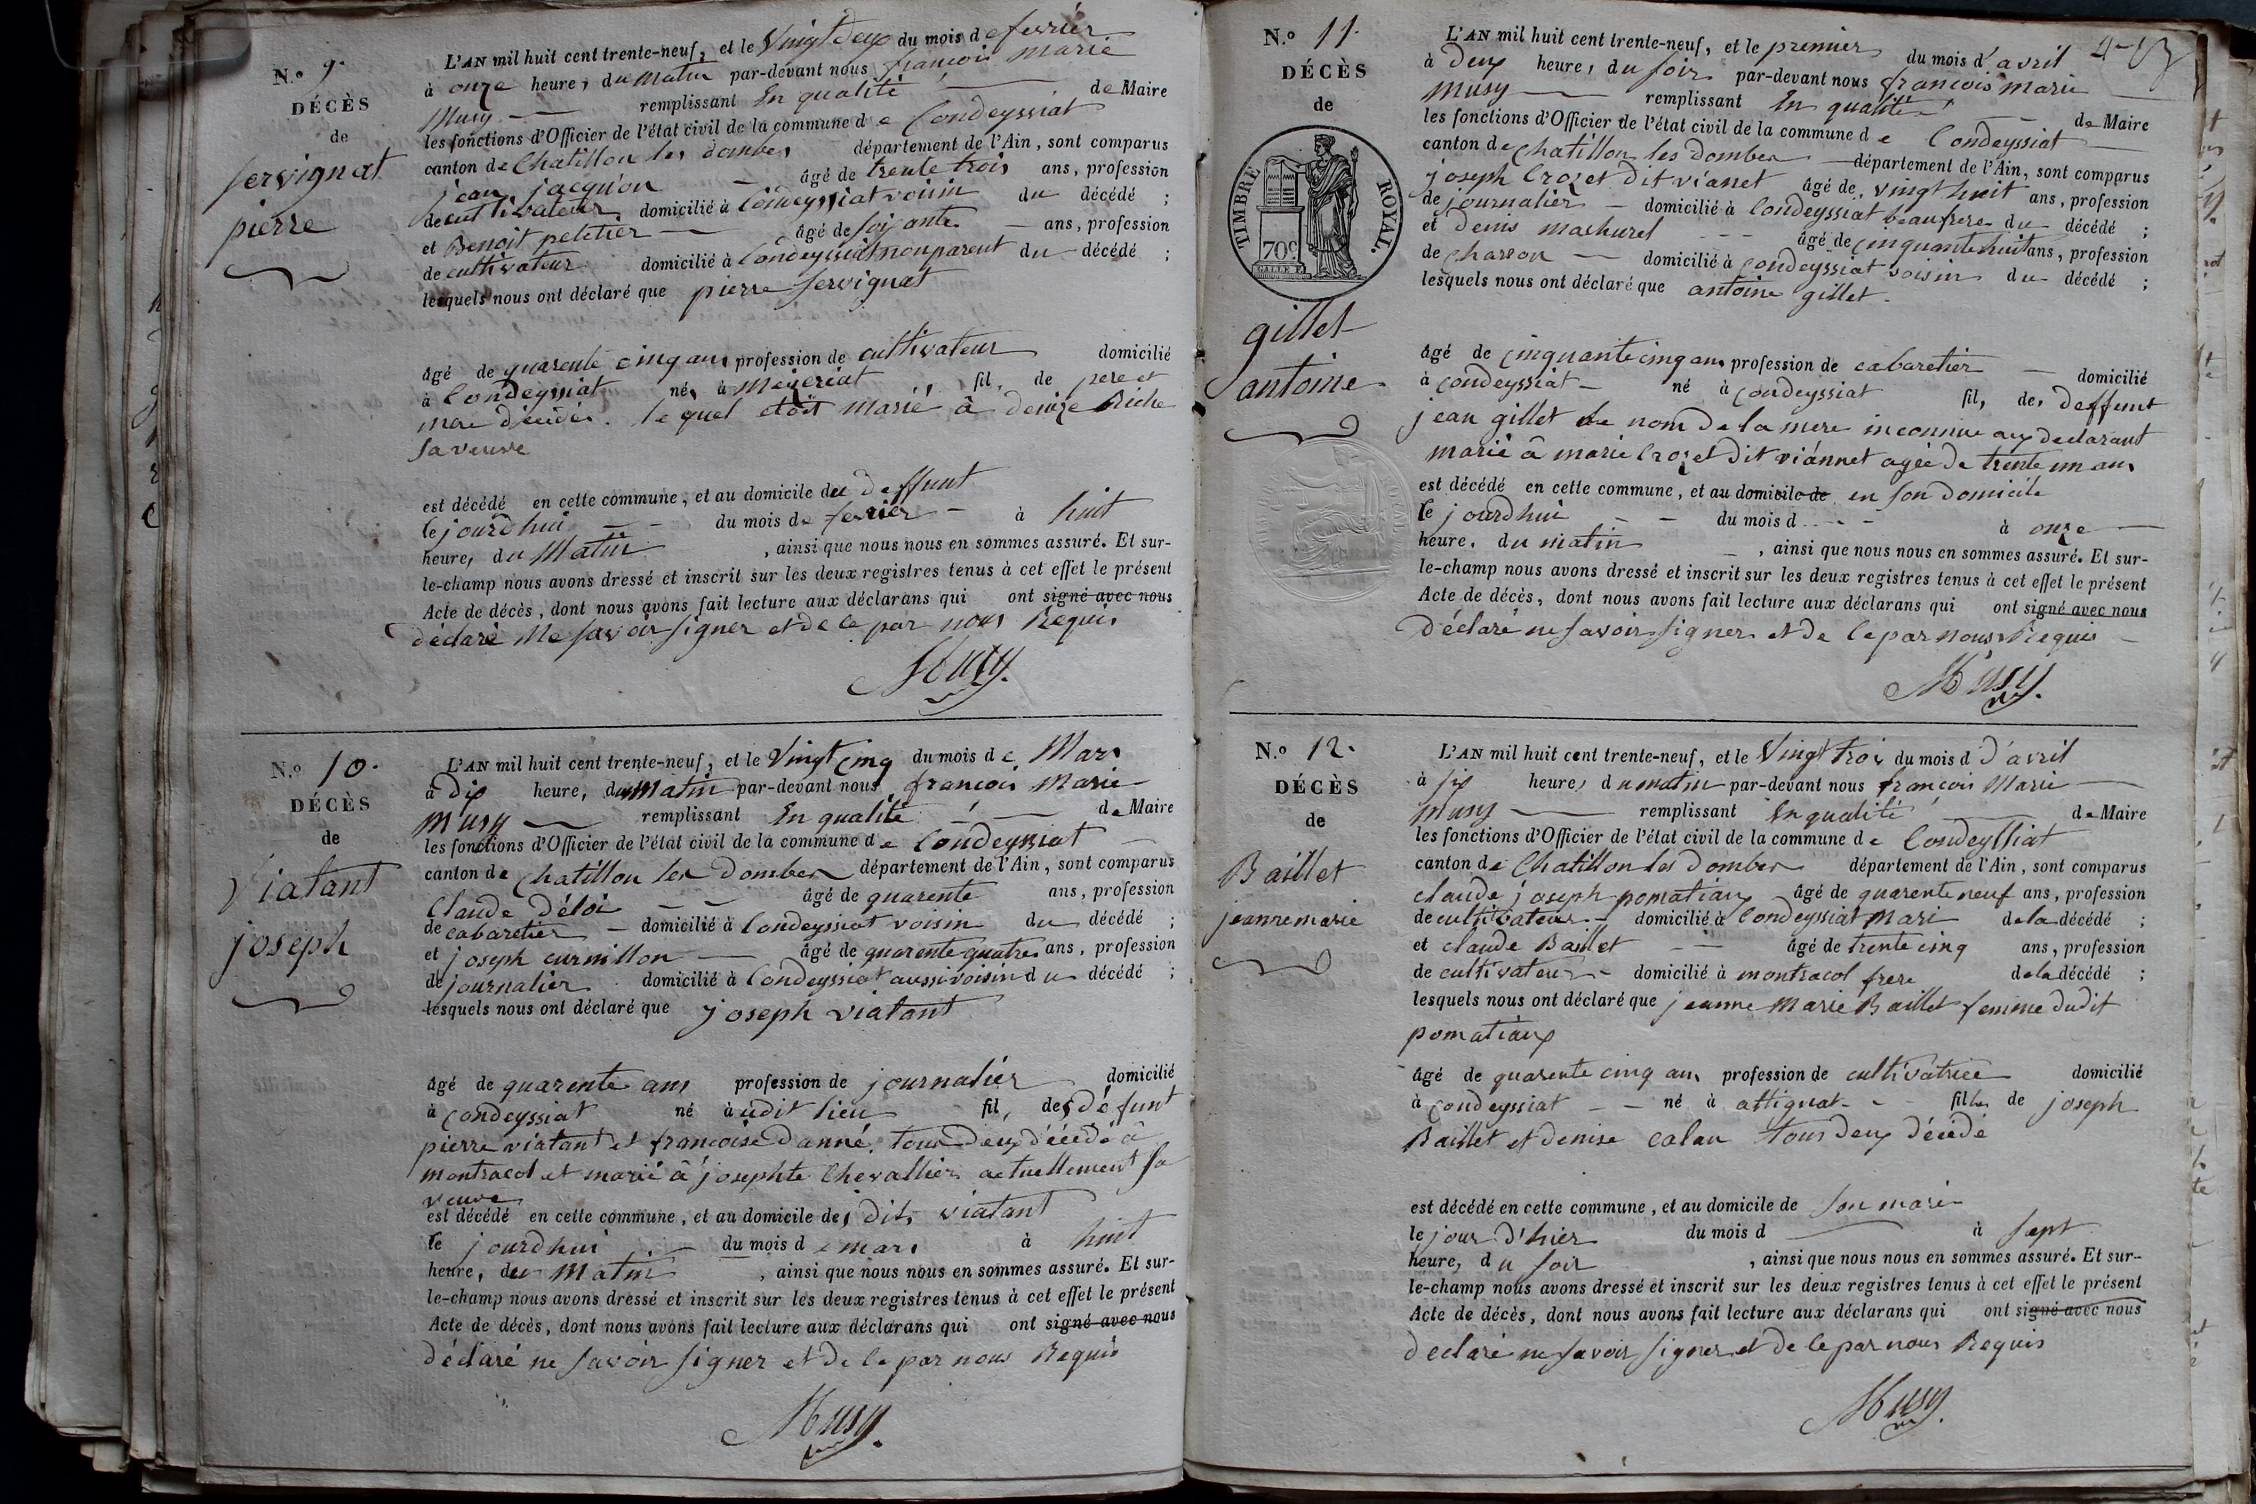 N.º 9.
DÉCÈS
de
servignat
pierre
L'AN mil huit cent trente-neuf, et le vingt deux du mois de fevrier
à onze heures du matin par-devant nous françois marie
Musy remplissant En qualité de Maire
les fonctions d'Officier de l'état civil de la commune de Condeyssiat
canton de Chatillon les dombes département de l'Ain, sont comparus
jean jacquon âgé de trente trois ans, profession
de cultivateur domicilié à Condeyssiat voisin du décédé ;
et Benoit peletier âgé de soixante ans, profession
de cultivateur domicilié à Condeyssiat non parent du décédé ;
lesquels nous ont déclaré que pierre servignat
âgé de quarente cinq ans profession de cultivateur domicilié
à Condeyssiat né à Mezeriat fils de pere et
mere décédés. le quel etoit marié à denize Riche
sa veuve
est décédé en cette commune, et au domicile du deffunt
le jourdhui du mois de fevrier à huit
heures du Matin, ainsi que nous nous en sommes assuré. Et sur-
le-champ nous avons dressé et inscrit sur les deux registres tenus à cet effet le présent
Acte de décès, dont nous avons fait lecture aux déclarans qui ont signé avec nous
déclaré ne savoir signer et de ce par nous Requis
Musy.
N.º 10.
DÉCÈS
de
viatant
joseph
L'AN mil huit cent trente-neuf, et le vingt cinq du mois de Mars
à dix heures du Matin par-devant nous françois Marie
Musy remplissant En qualité de Maire
les fonctions d'Officier de l'état civil de la commune de Condeyssiat
canton de Chatillon les Dombes département de l'Ain, sont comparus
Claude Déloi âgé de quarente ans, profession
de cabaretier domicilié à Condeyssiat voisin du décédé ;
et joseph curnillon âgé de quarente quatre ans, profession
de journalier domicilié à Condeyssiat aussi voisin du décédé ;
lesquels nous ont déclaré que joseph viatant
âgé de quarente ans profession de journalier domicilié
à Condeyssiat né audit lieu fils des défunt
pierre viatant et françoise danné tous deux décédé à
montracol et marié à josephte Chevallier actuellement sa
veuve
est décédé en cette commune, et au domicile des dits viatant
le jourdhui du mois de mars à huit
heures du Matin, ainsi que nous nous en sommes assuré. Et sur-
le-champ nous avons dressé et inscrit sur les deux registres tenus à cet effet le présent
Acte de décès, dont nous avons fait lecture aux déclarans qui ont signé avec nous
déclaré ne savoir signer et de ce par nous Requis
Musy.
N.º 11.
DÉCÈS
de
TIMBRE ROYAL.
70c
gillet
antoine
L'AN mil huit cent trente-neuf, et le premier du mois d'avril
à deux heures du soir par-devant nous françois marie
Musy remplissant En qualité de Maire
les fonctions d'Officier de l'état civil de la commune de Condeyssiat
canton de chatillon les Dombes département de l'Ain, sont comparus
joseph Crozet dit vianet âgé de vingt huit ans, profession
de journalier domicilié à Condeyssiat beaufrere du décédé ;
et denis mashurel âgé de cinquante huit ans, profession
de charron domicilié à condeyssiat voisin du décédé ;
lesquels nous ont déclaré que antoine gillet.
âgé de cinquante cinq ans profession de cabaretier domicilié
à condeyssiat né à condeyssiat fils de deffunt
jean gillet le nom de la mere inconnue aux declarant
marié à marie Crozet dit viannet agée de trente un ans
est décédé en cette commune, et au domicile de en son domicile
le jourdhui du mois d à onze
heures du matin, ainsi que nous nous en sommes assuré. Et sur-
le-champ nous avons dressé et inscrit sur les deux registres tenus à cet effet le présent
Acte de décès, dont nous avons fait lecture aux déclarans qui ont signé avec nous
déclaré ne savoir signer et de ce par nous Requis
Musy.
N.º 12.
DÉCÈS
de
Baillet
jeanne marie
L'AN mil huit cent trente-neuf, et le Vingt trois du mois d d'avril
à six heures du matin par-devant nous françois Marie
Musy remplissant En qualité de Maire
les fonctions d'Officier de l'état civil de la commune de Condeyssiat
canton de Chatillon les Dombes département de l'Ain, sont comparus
claude joseph pomatiaux âgé de quarente neuf ans, profession
de cultivateur domicilié à Condeyssiat Mari de la décédé ;
et claude Baillet âgé de trente cinq ans, profession
de cultivateur domicilié à montracol frere de la décédé ;
lesquels nous ont déclaré que jeanne Marie Baillet femme dudit
pomatiaux
âgé de quarente cinq ans profession de cultivatrice domicilié
à Condeyssiat né à attignat fille de joseph
Baillet et denise calan tous deux décédé
est décédé en cette commune, et au domicile de son mari
le jour d'hier du mois d à sept
heures du soir, ainsi que nous nous en sommes assuré. Et sur-
le-champ nous avons dressé et inscrit sur les deux registres tenus à cet effet le présent
Acte de décès, dont nous avons fait lecture aux déclarans qui ont signé avec nous
declaré ne savoir signer et de ce par nous Requis
Musy.